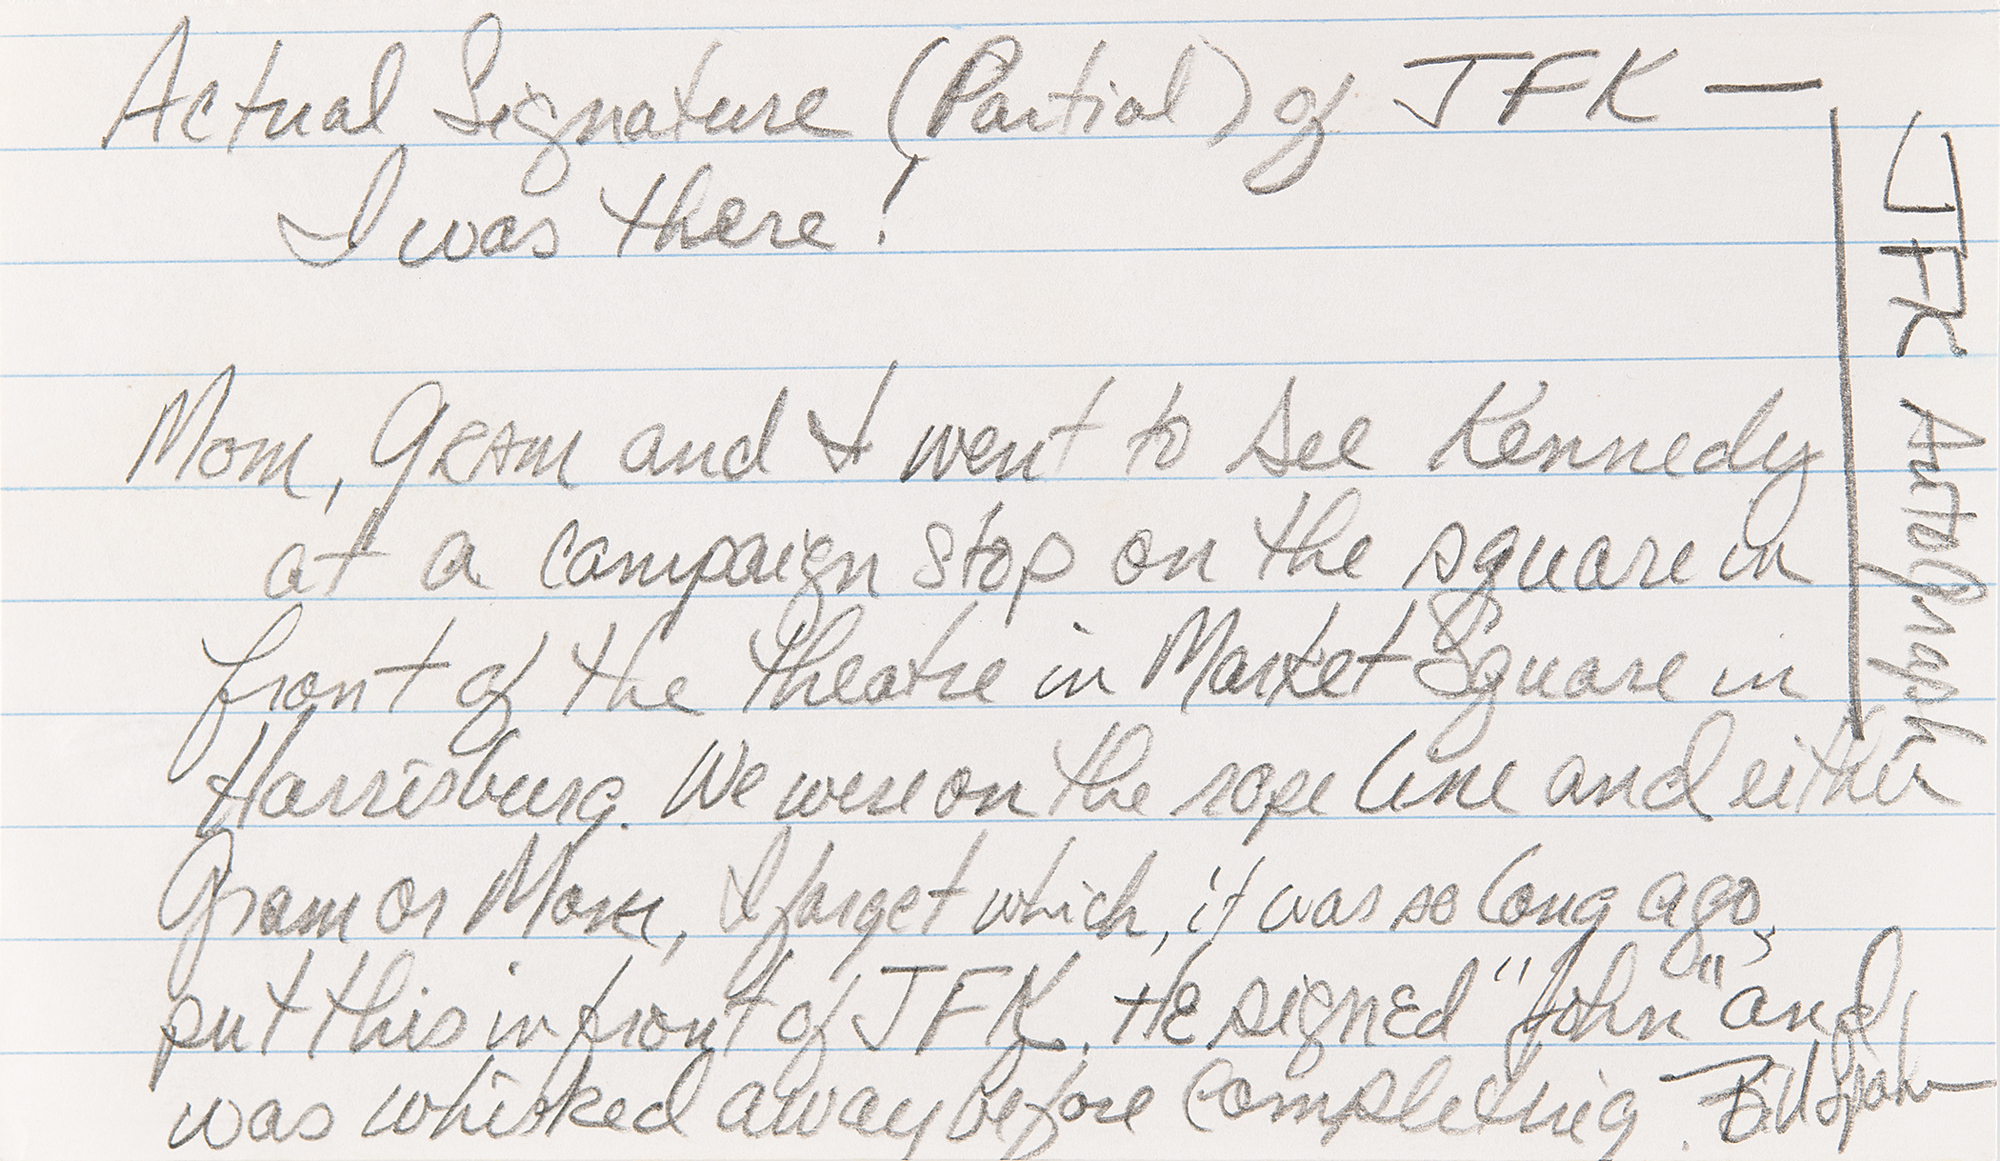 Actual Signature (Partial) of JFK —
I was there!
Mom, Gram and I went to see Kennedy
at a campaign stop on the square in
front of the theatre in Market Square in
Harrisburg. We were on the rope line and either
Gram or Mom, I forget which, it was so long ago,
put this in front of JFK. He signed "John" and
was whisked away before completing. Bill
JFK Autograph